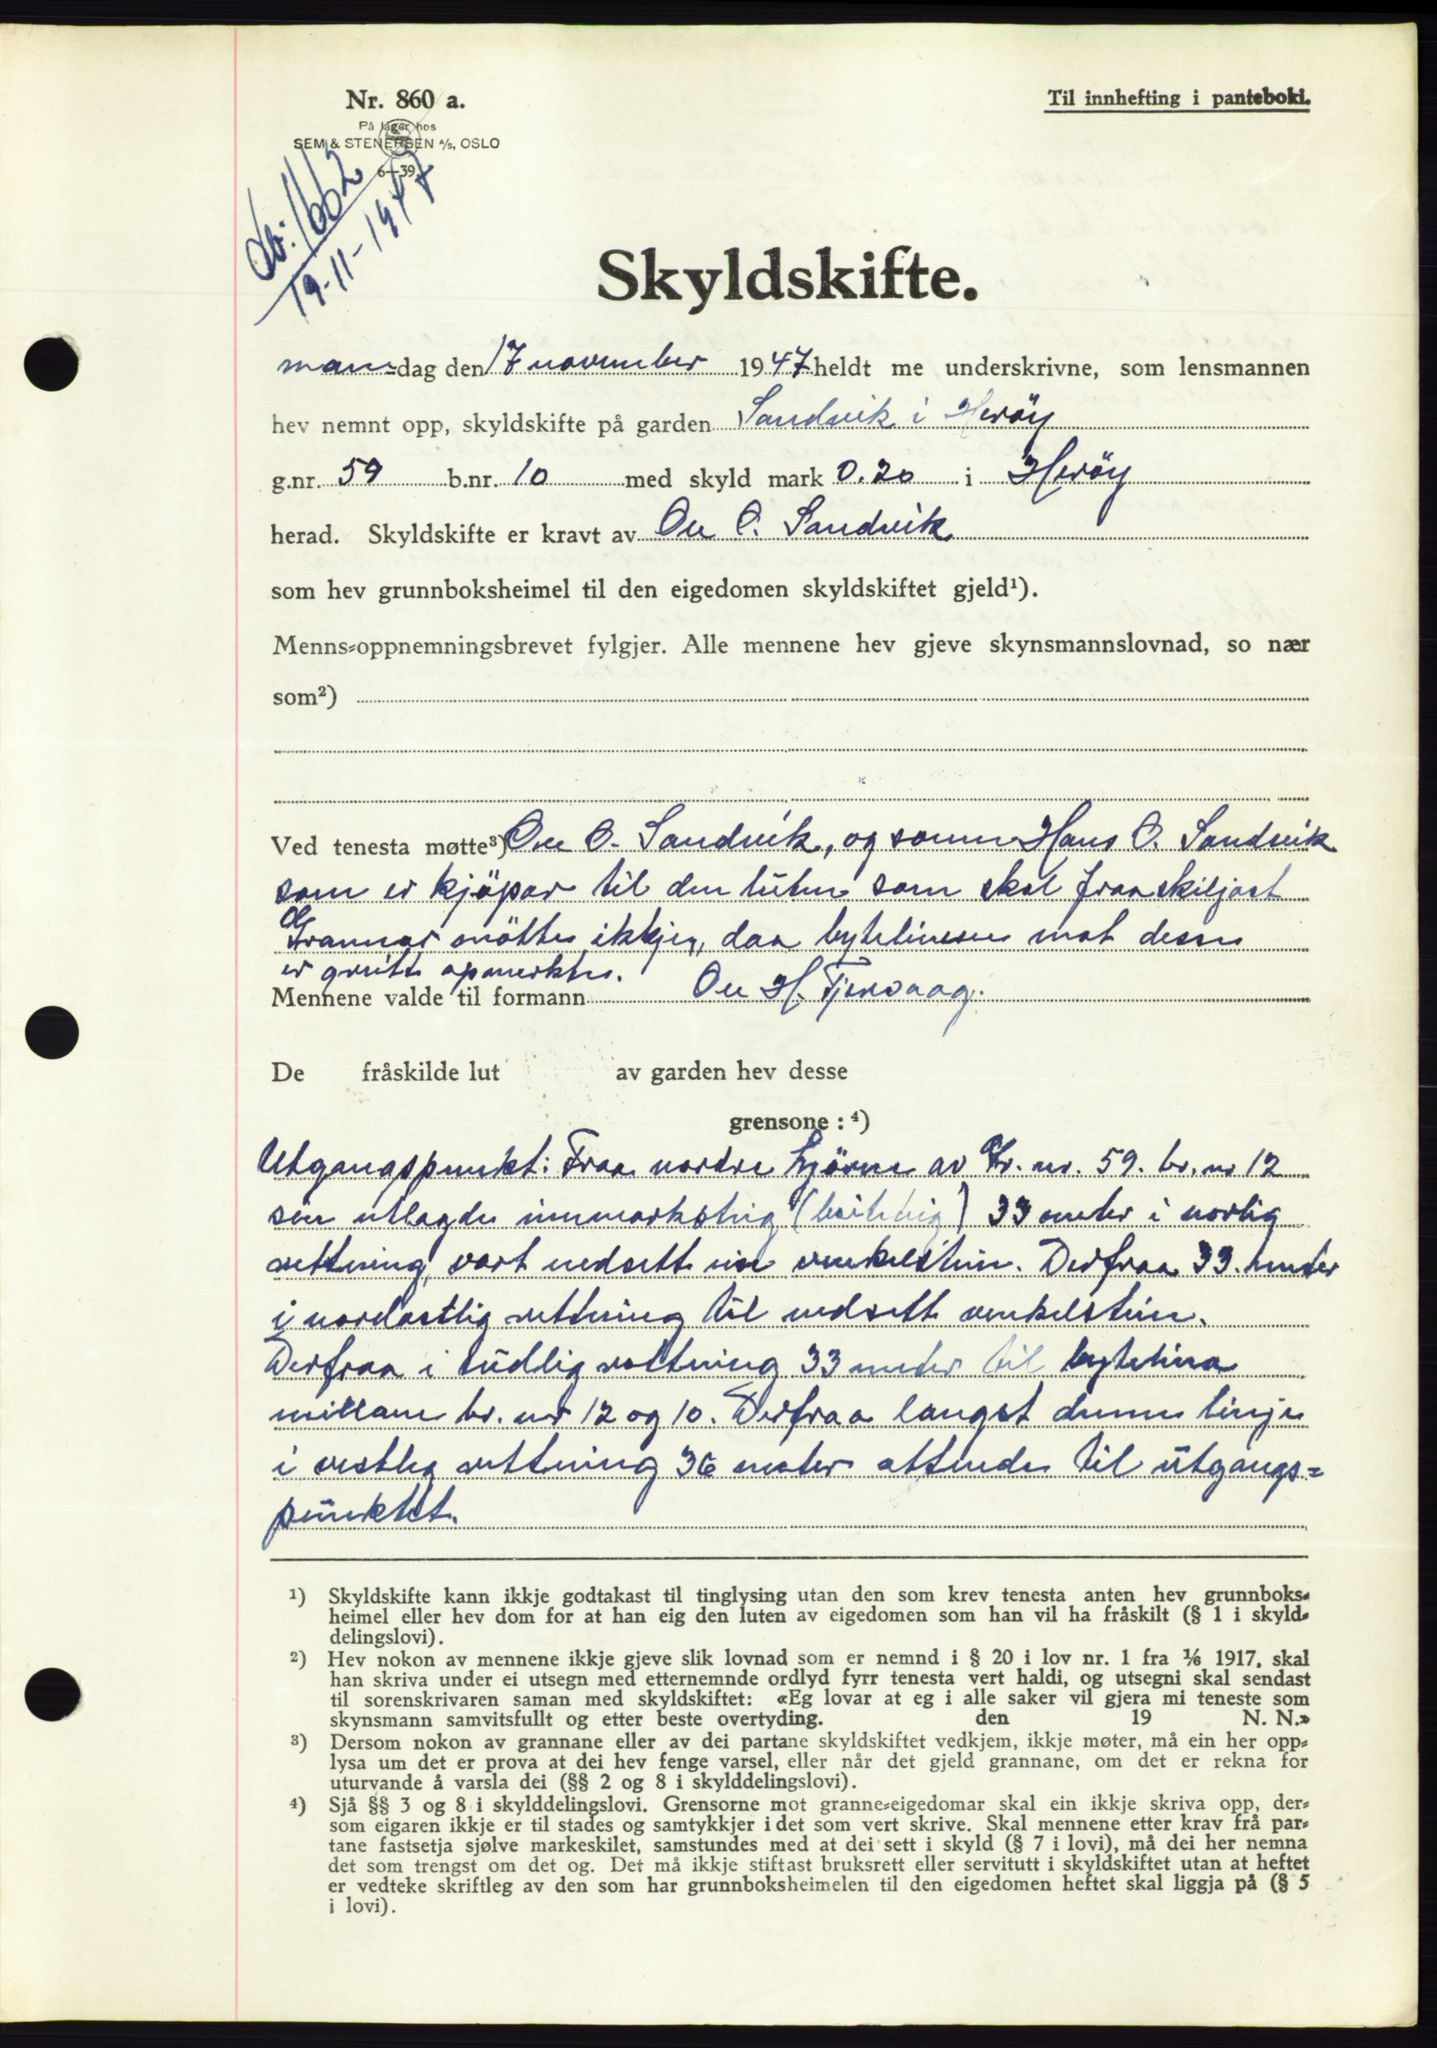 Nr. 860 a.
Til innhefting i panteboki.
På lager hos
SEM & STENERSEN A/S, OSLO
6—39.
1662
19-11-1947
Skyldskifte.
man=dag den 17 november 1947 heldt me underskrivne, som lensmannen
hev nemnt opp, skyldskifte på garden Sandvik i Heröy
g.nr. 59 b.nr. 10 med skyld mark 0.20 i Heröy
herad. Skyldskifte er kravt av Ove O. Sandvik
som hev grunnboksheimel til den eigedomen skyldskiftet gjeld¹).
Menns=oppnemningsbrevet fylgjer. Alle mennene hev gjeve skynsmannslovnad, so nær
som²)
Ved tenesta møtte³) Ove O. Sandvik, og sonen Hans O. Sandvik
som er kjöpar til den luten som skal fraaskiljast
Grannar mötte ikkje, daa bytelinene mot desse
er greitt opmerkte.
Mennene valde til formann Ove H. Tjervaag.
De fråskilde lut av garden hev desse
grensone : ⁴)
Utgangspunkt: Fraa nordre hjörne av Gr. nr. 59. br. nr 12
sin utlagde innmarksteig 33 meter i norlig
rettning, vart nedsett ein vinkelstein. Derfraa 33. meter
i nordostlig rettning til nedsett vinkelstein.
Derfraa i sudlig rettning 33 meter til bytelina
millom br. nr 12 og 10. Derfraa langst denne linje
i vestleg rettning 36 meter attende til utgangs=
punktet.
¹) Skyldskifte kann ikkje godtakast til tinglysing utan den som krev tenesta anten hev grunnboks=
heimel eller hev dom for at han eig den luten av eigedomen som han vil ha fråskilt (§ 1 i skyld=
delingslovi).
²) Hev nokon av mennene ikkje gjeve slik lovnad som er nemnd i § 20 i lov nr. 1 fra 1/6 1917, skal
han skriva under ei utsegn med etternemnde ordlyd fyrr tenesta vert haldi, og utsegni skal sendast
til sorenskrivaren saman med skyldskiftet: «Eg lovar at eg i alle saker vil gjera mi teneste som
skynsmann samvitsfullt og etter beste overtyding. den 19 N. N.»
³) Dersom nokon av grannane eller av dei partane skyldskiftet vedkjem, ikkje møter, må ein her opp=
lysa um det er prova at dei hev fenge varsel, eller når det gjeld grannane, om det er rekna for
uturvande å varsla dei (§§ 2 og 8 i skylddelingslovi).
⁴) Sjå §§ 3 og 8 i skylddelingslovi. Grensorne mot granne=eigedomar skal ein ikkje skriva opp, der=
som eigaren ikkje er til stades og samtykkjer i det som vert skrive. Skal mennene etter krav frå par=
tane fastsetja sjølve markeskilet, samstundes med at dei sett i skyld (§ 7 i lovi), må dei her nemna
det som trengst om det og. Det må ikkje stiftast bruksrett eller servitutt i skyldskiftet utan at heftet
er vedteke skriftleg av den som har grunnboksheimelen til den eigedomen heftet skal liggja på (§ 5
i lovi).